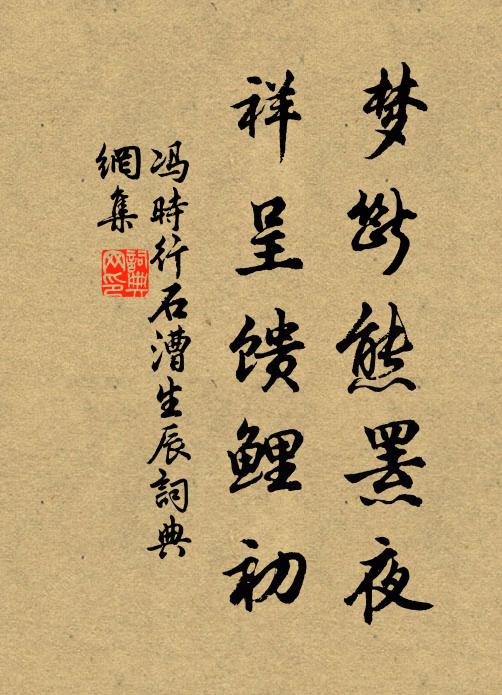 梦断熊罴夜
祥呈馈鲤初
冯時行石漕生辰詞典
網集
詞典网印